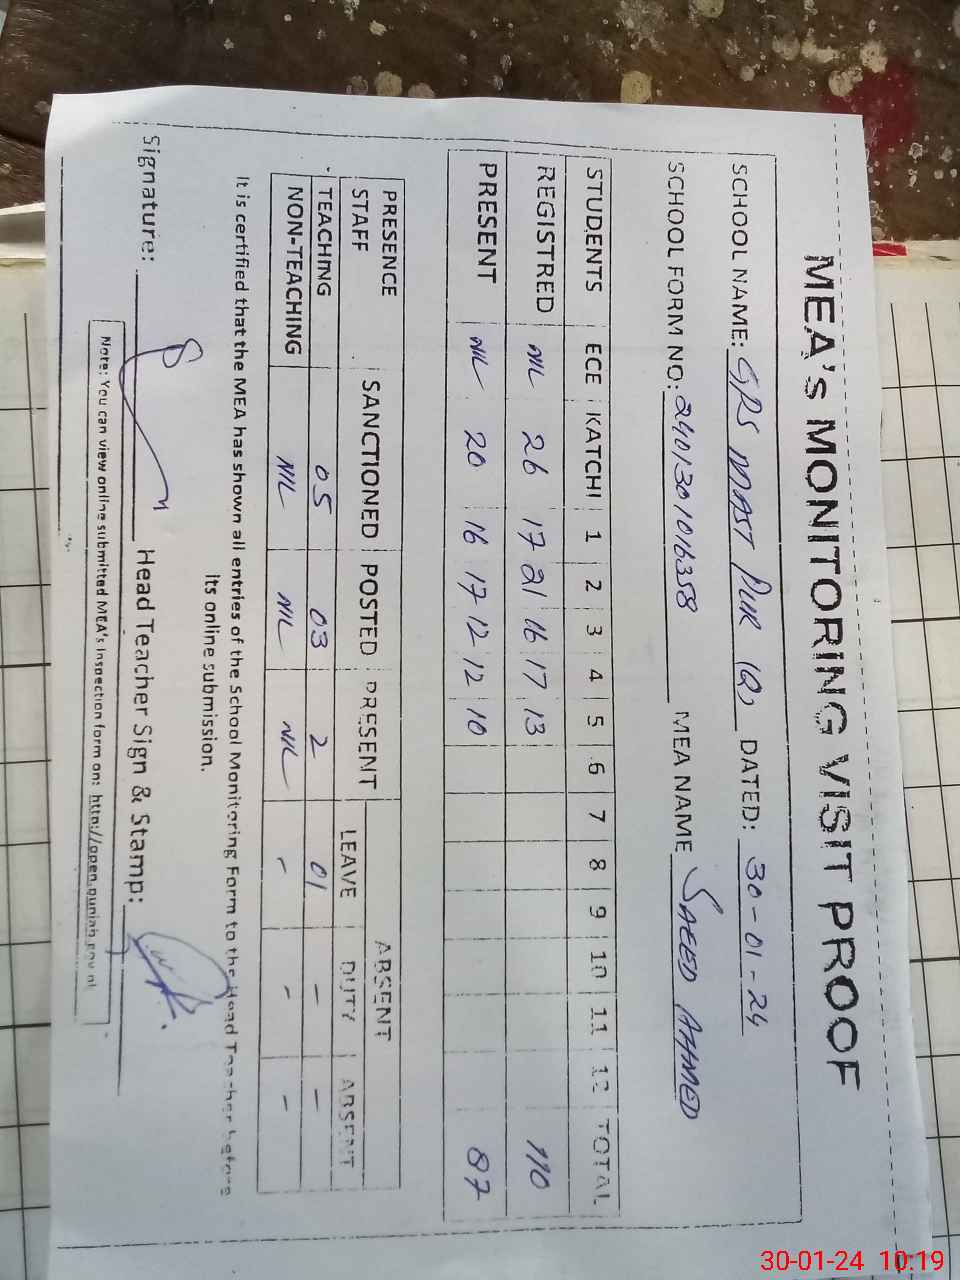 MEA's MONITORING VISIT PROOF
SCHOOL NAME: GPS MAST PUR (Q) DATED: 30-01-24
SCHOOL FORM NO: 2401301016358 MEA NAME SAEED AHMED
STUDENTS ECE KATCHI 1 2 3 4 5 6 7 8 9 10 11 12 TOTAL
REGISTRED NIL 26 17 21 16 17 13 110
PRESENT NIL 20 16 17 12 12 10 87
PRESENCE STAFF SANCTIONED POSTED PRESENT ABSENT
LEAVE DUTY ABSENT
TEACHING 05 03 2 01 - -
NON-TEACHING NIL NIL NIL - - -
It is certified that the MEA has shown all entries of the School Monitoring Form to the Head Teacher before
its online submission.
Signature: Head Teacher Sign & Stamp:
Note: You can view online submitted MEA's inspection form on: http://open.punjab.gov.pk
30-01-24 10:19